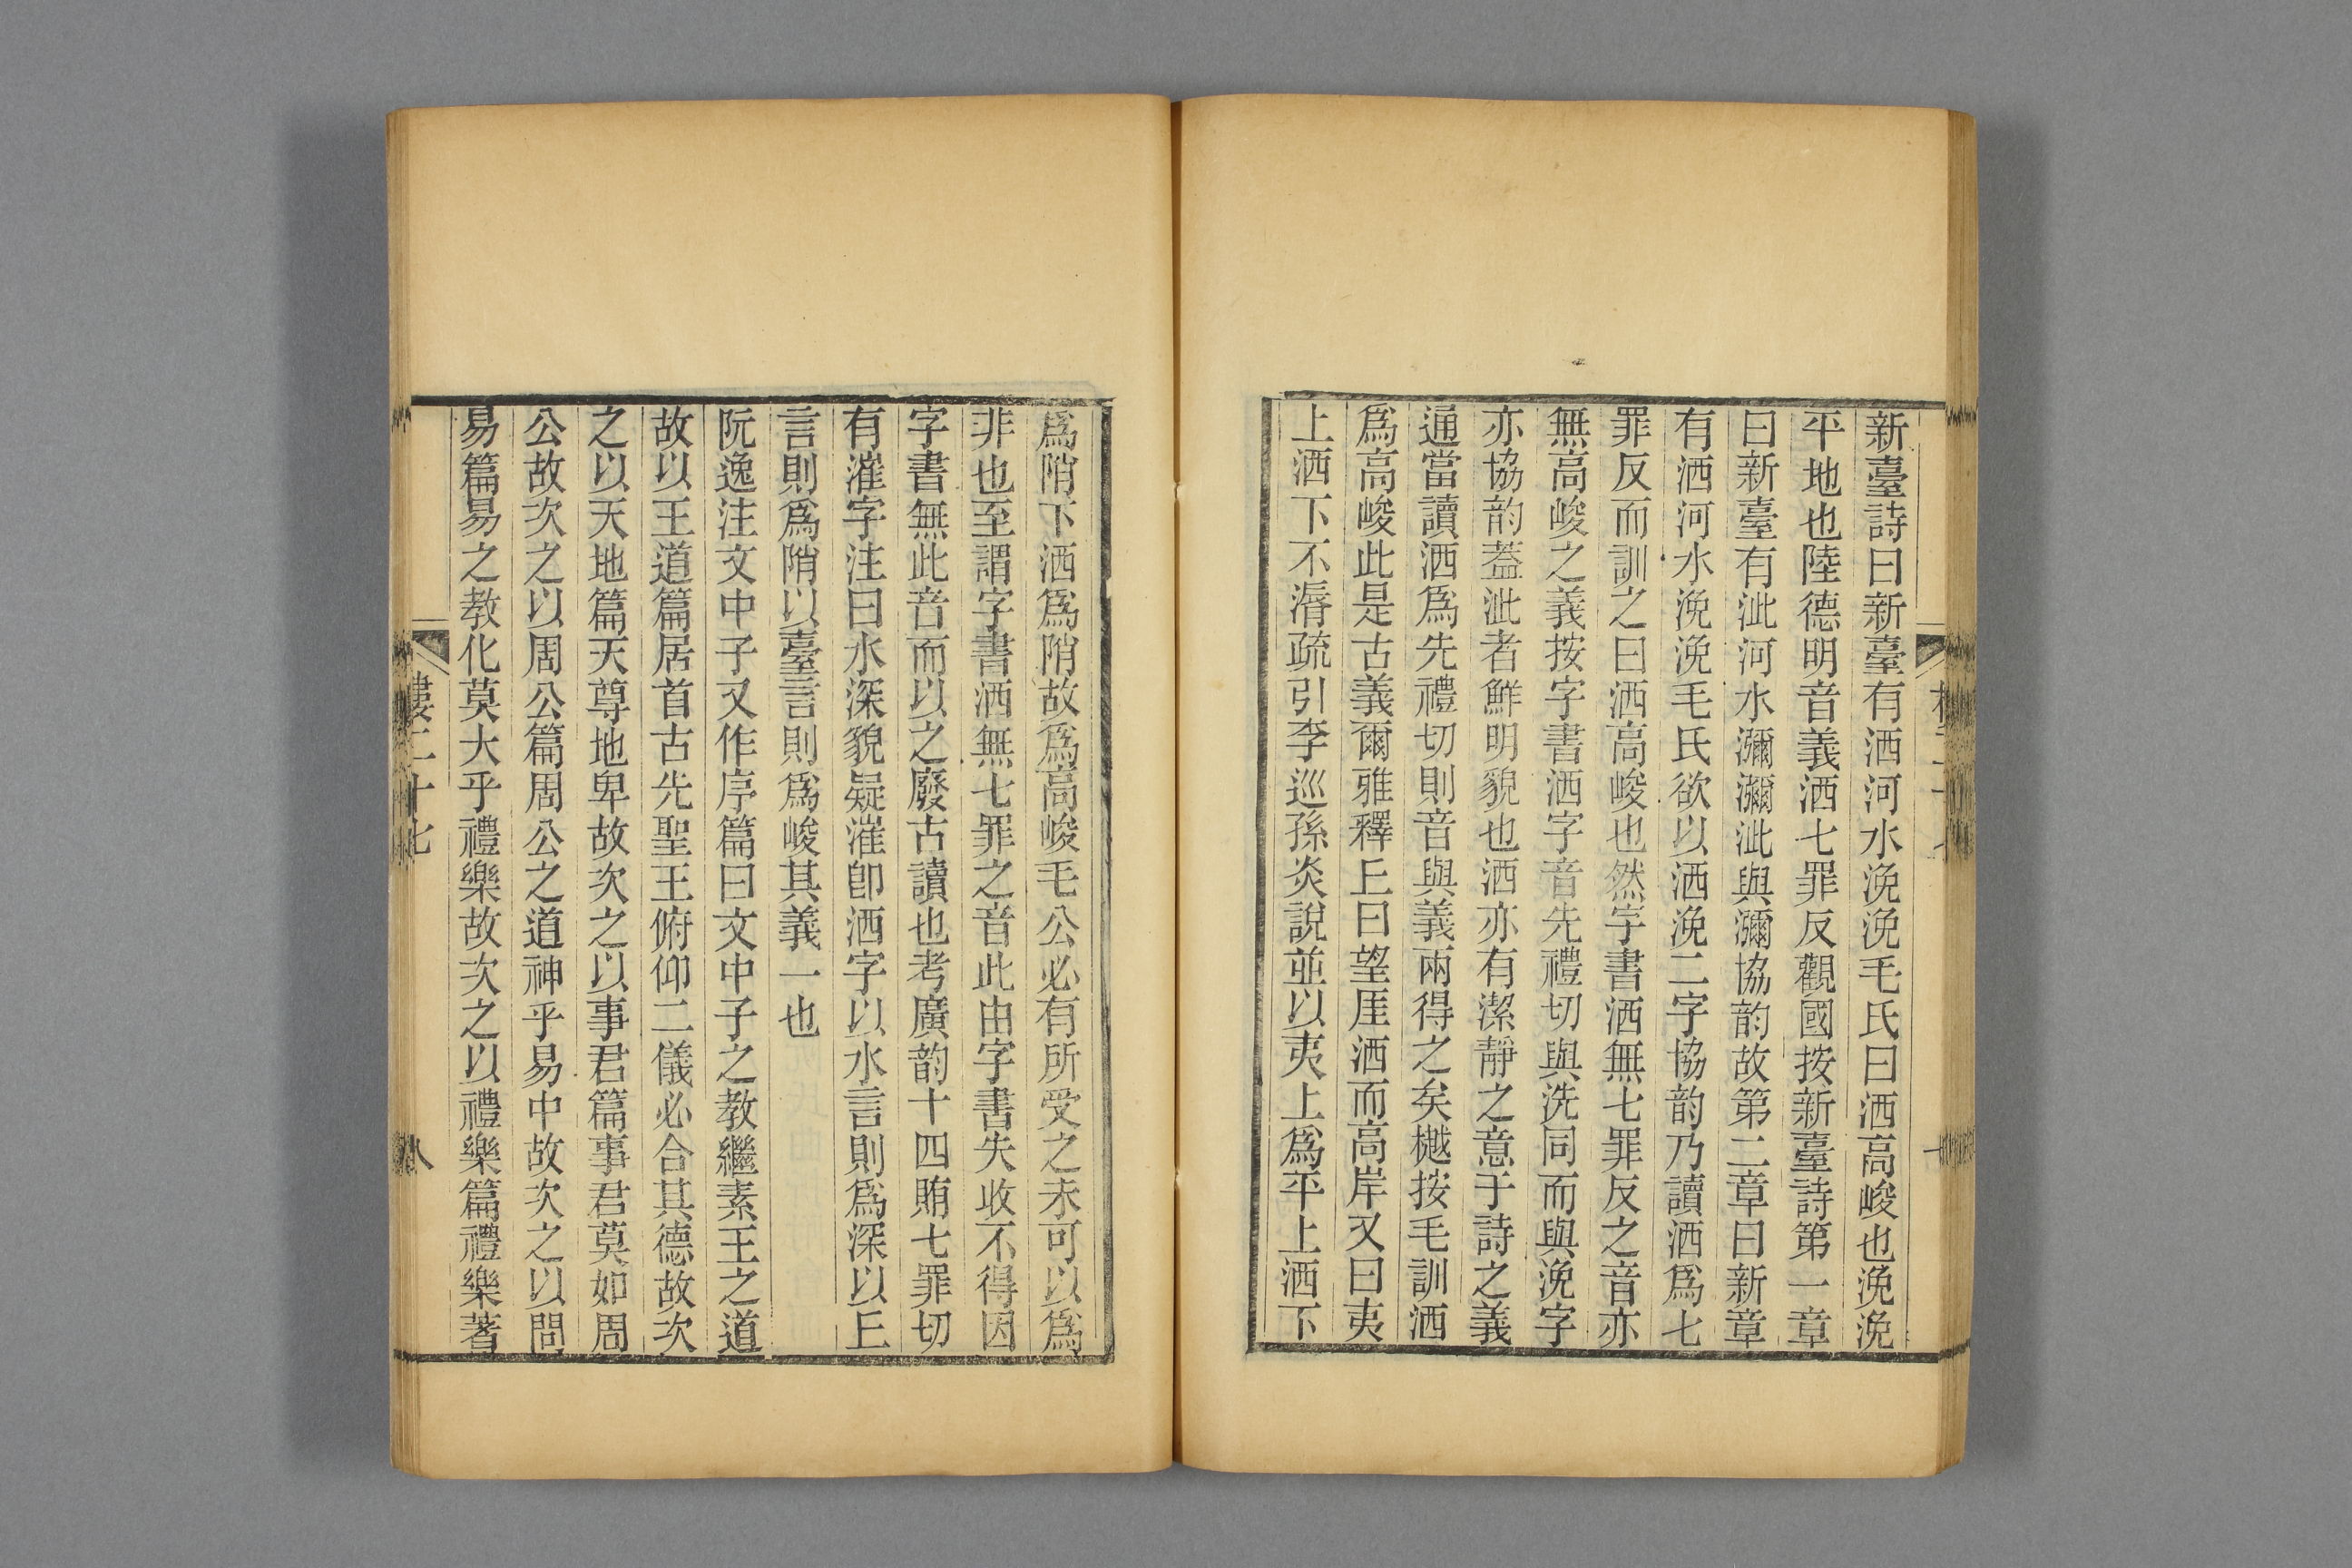 新臺詩曰新臺有洒河水浼浼毛氏曰洒高峻也浼浼
平地也陸德明音義洒七罪反觀國按新臺詩第一章
曰新臺有泚河水瀰瀰泚與瀰協韵故第二章曰新章
有洒河水浼浼毛氏欲以洒浼二字協韵乃讀洒爲七
罪反而訓之曰洒高峻也然字書洒無七罪反之音亦
無高峻之義按字書洒字音先禮切與洗同而與浼字
亦協韵葢泚者鮮明貌也洒亦有潔靜之意于詩之義
通當讀洒爲先禮切則音與義兩得之矣樾按毛訓洒
爲高峻此是古義爾雅釋上曰望厓洒而高岸又曰夷
上洒下不漘疏引李巡孫炎說並以夷上爲平上洒下
爲陗下洒爲陗故爲高峻毛公必有所受之未可以爲
非也至謂字書洒無七罪之音此由字書失收不得因
字書無此音而以之廢古讀也考廣韵十四賄七罪切
有漼字注曰水深貌疑漼卽洒字以水言則爲深以上
言則爲陗以臺言則爲峻其義一也
阮逸注文中子又作序篇曰文中子之教繼素王之道
故以王道篇居首古先聖王俯仰二儀必合其德故次
之以天地篇天尊地卑故次之以事君篇事君莫如周
公故次之以周公篇周公之道神乎易中故次之以問
易篇易之教化莫大乎禮樂故次之以禮樂篇禮樂著
樓二十七
八